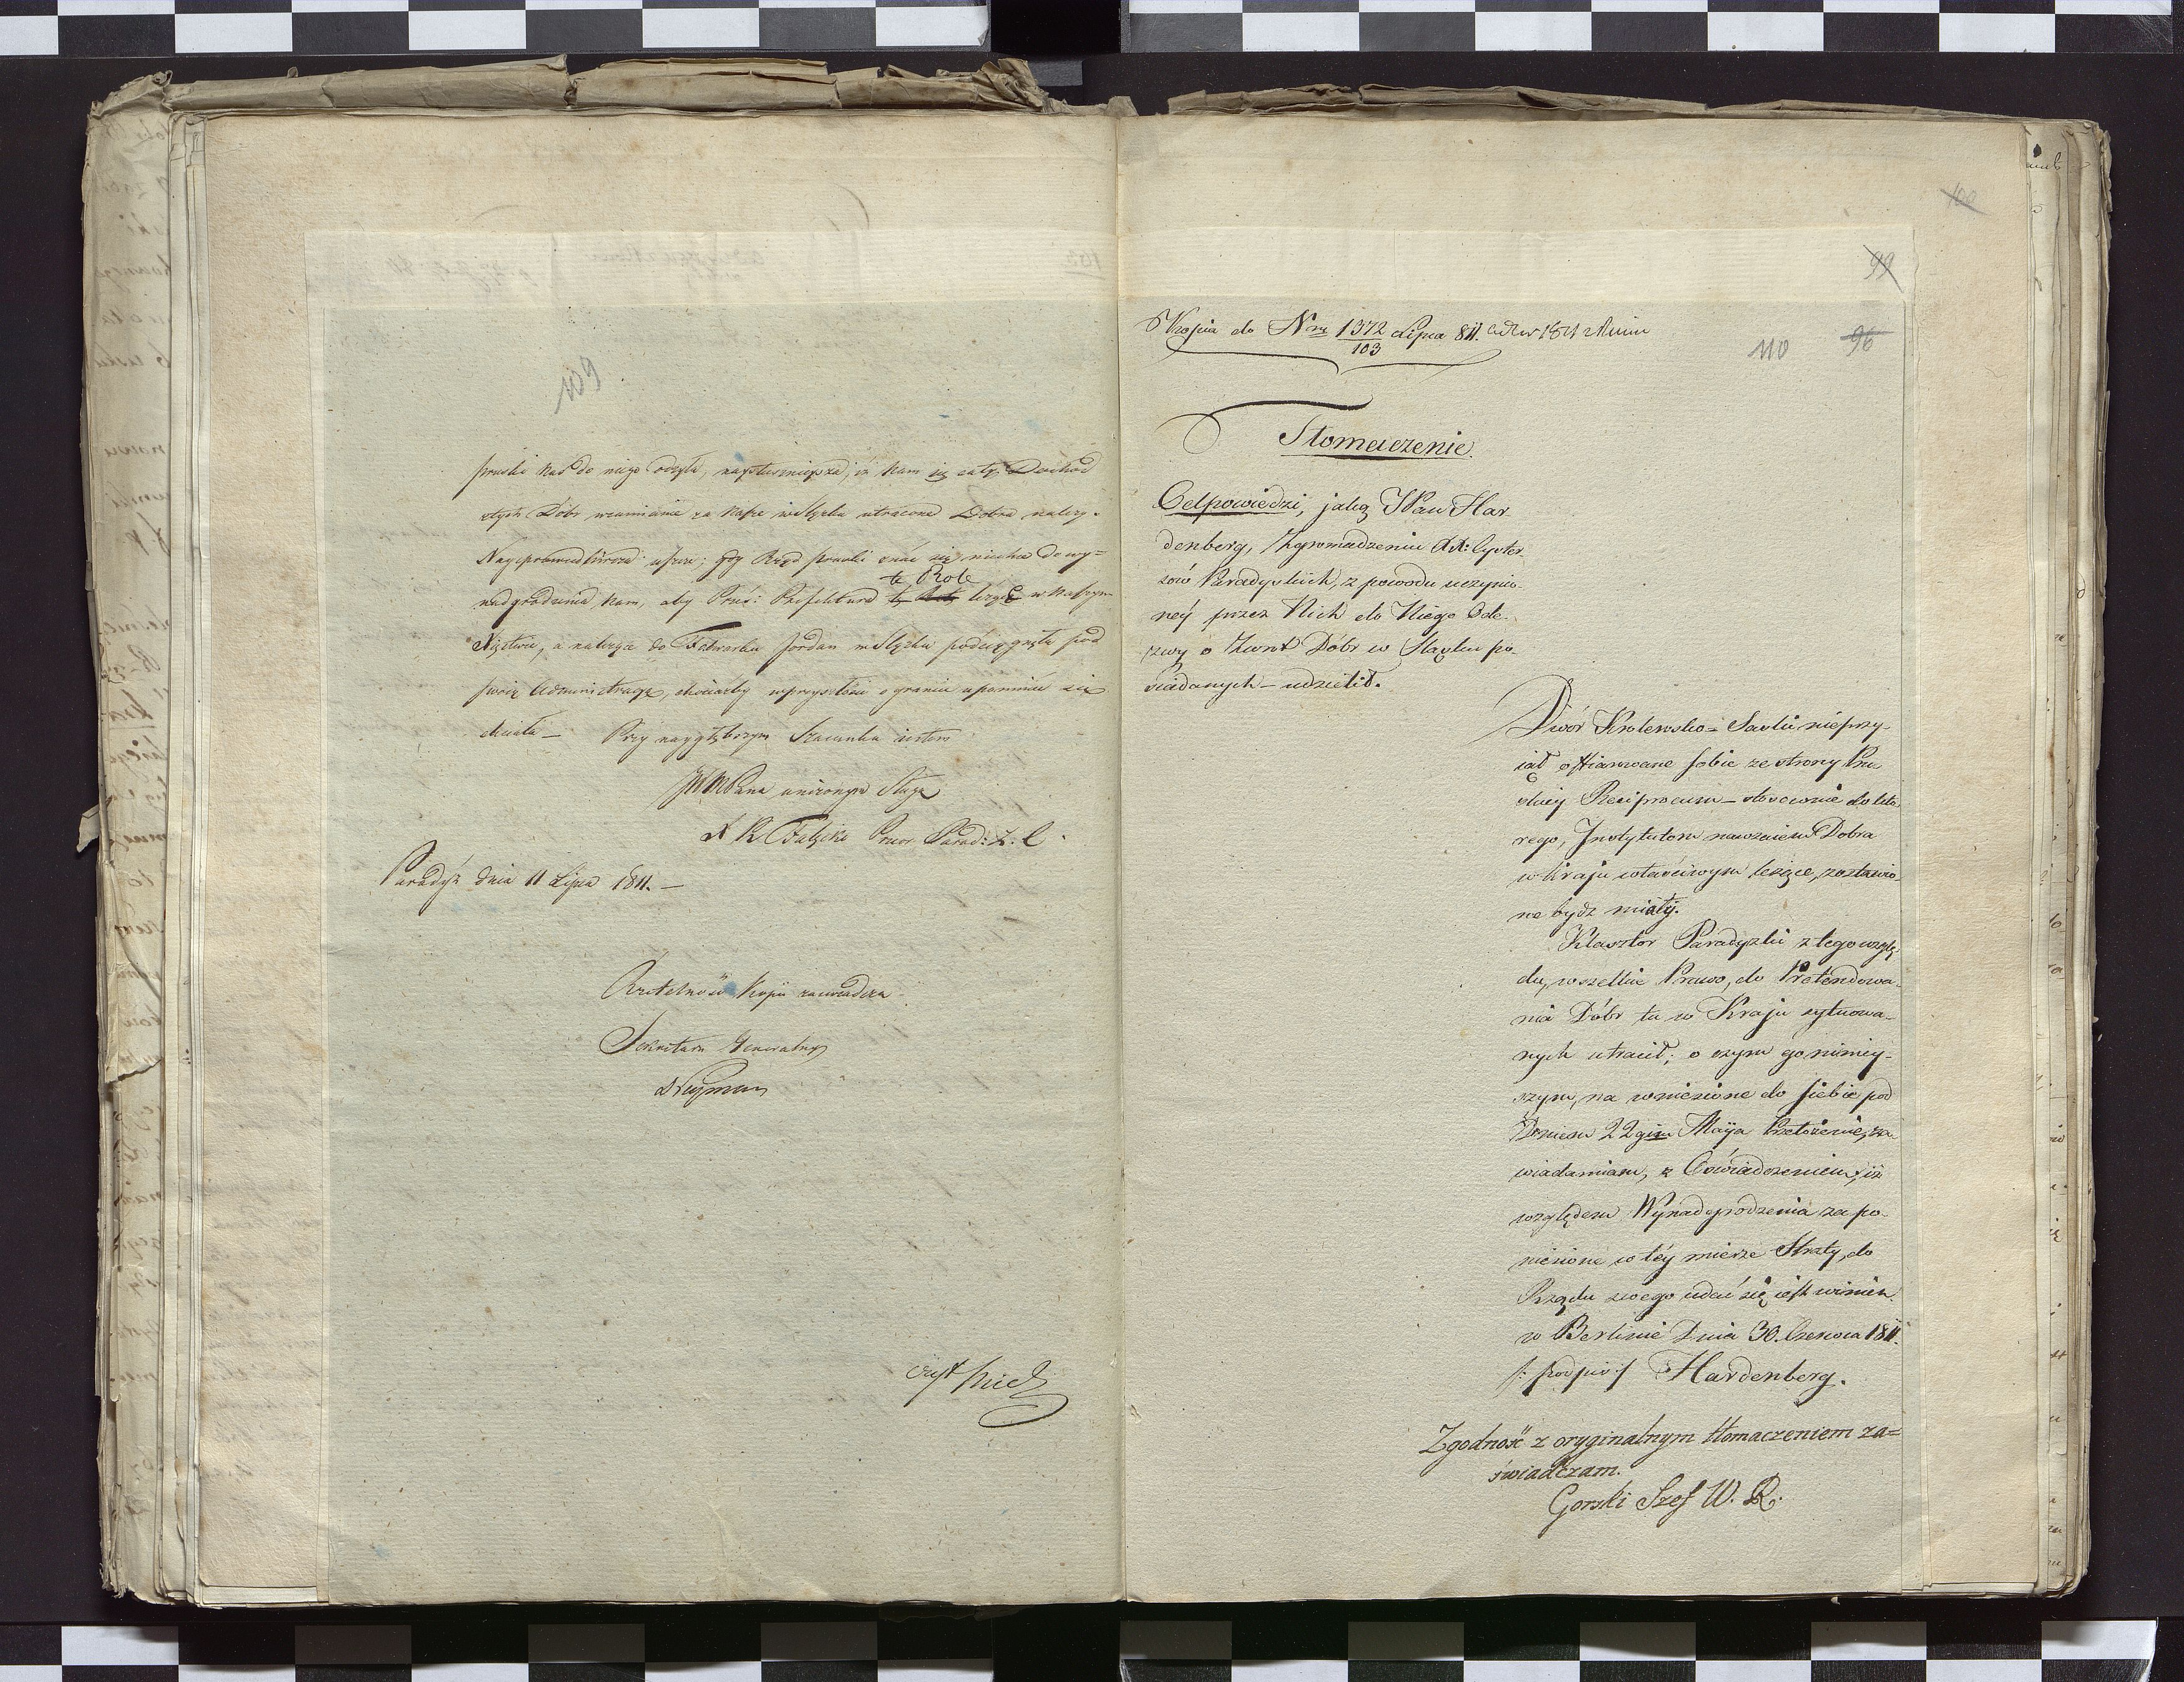 109
pruski nas do niego odsyła, naypewnieysza, iż nam się cały Dochod
z tych Dóbr wzamianie za nasze w Sląsku utracone Dobra należy.
Nayspra­wiedliwsza usza; gdy Rząd pruski znać się niechce do wy=
te Role
nadgrodzenia nam, aby Prześ: Prefektura leżące w naszym
a należące do Folwarku Jordan w Sląsku podciągnęła pod
swoię Administracyą, chociażby wprzyszłości o granice upomnieć się
chciała — Przy naygłębszym Szacunku iestem
JWWPana uniżonym Sługą
X R Przeor Parad: Z: C.
Paradyż dnia 11 Lipca 1811. —
Rzetelność Kopii zaswiadcza
Sekretarz Generalny
Neyman
99
Kopia do Nru 1372/103 Lipca 811.
110 96
100
Tłomaczenie.
Odpowiedzi, jaką JPan Har
denberg, Zgromadzeniu XX: Cyster
sow Paradyskich, z powodu uczynio
ney przez Nich do Niego Ode
zwy o Zwrot Dóbr w Sląsku po
siadanych – udzielił.
Dwór Krolewsko=Saski nieprzy-
iął offiarowane sobie ze strony Pru
skiey Reciprocum – stosownie do któ
rego, Instytutom nawzaiem Dobra
w Kraju właściwym leżące, zostawio
ne bydz miały.
Klasztor Paradyzki z tego wzglę
du, wszelkie Prawo, do Pretendowa
nia Dóbr tu w Kraju sytuowa-
nych utracił; o czym go niniey-
szym, na wniesione do siebie pod
Dniem 22gim Maja Przełożenie, za
wiadamiam, z Oświadczeniem, iż
względem Wynadgrodzenia za po
niesione w tey mierze Straty, do
Rządu swego udać się iest winien.
w Berlinie Dnia 30. Czerwca 1811.
/: podpis:/ Hardenberg.
Zgodność z oryginalnym tłomaczeniem za=
świadczam.
Gorski Szef W. R: